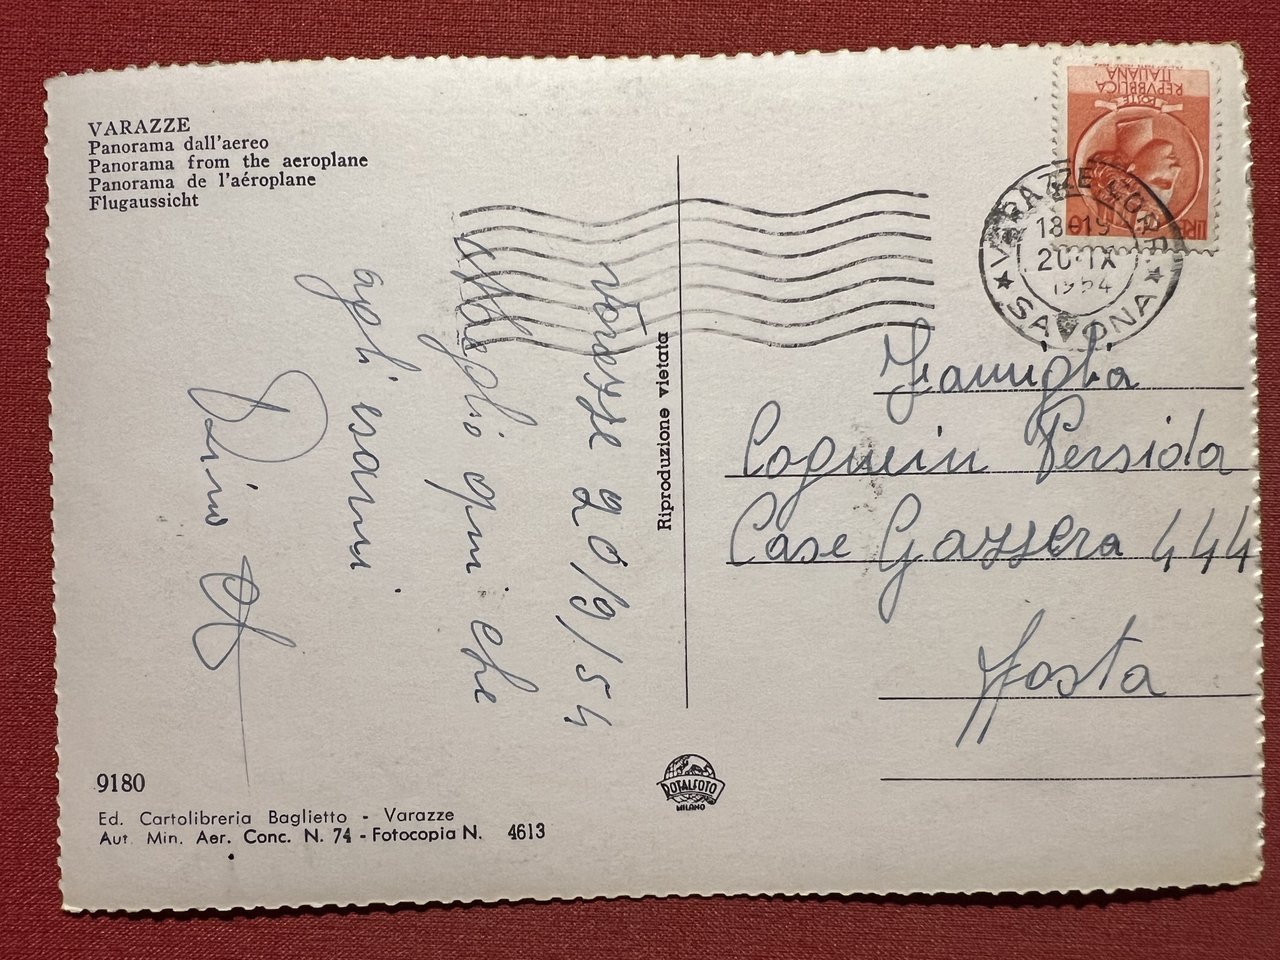 VARAZZE
Panorama dall'aereo
Panorama from the aeroplane
Panorama de l'aéroplane
Flugaussicht
REPVBBLICA
ITALIANA
POSTE
LIRE 10
VARAZZE CORR.
18-19
20·IX
1954
★ SAVONA ★
Varazze 20/9/54
Meglio qui che
agli esami.
Dino
Riproduzione vietata
Famiglia
Coquein Persida
Case Gazzera 444
Aosta
9180
Ed. Cartolibreria Baglietto - Varazze
Aut. Min. Aer. Conc. N. 74 - Fotocopia N. 4613
ROTALFOTO
MILANO